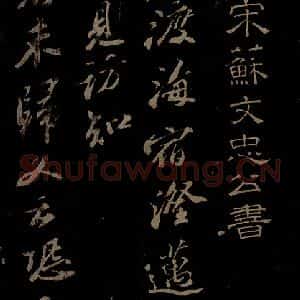 宋蘇文忠公書
渡海宿澄邁
見訪知
未歸又云恐
Shufawang.CN